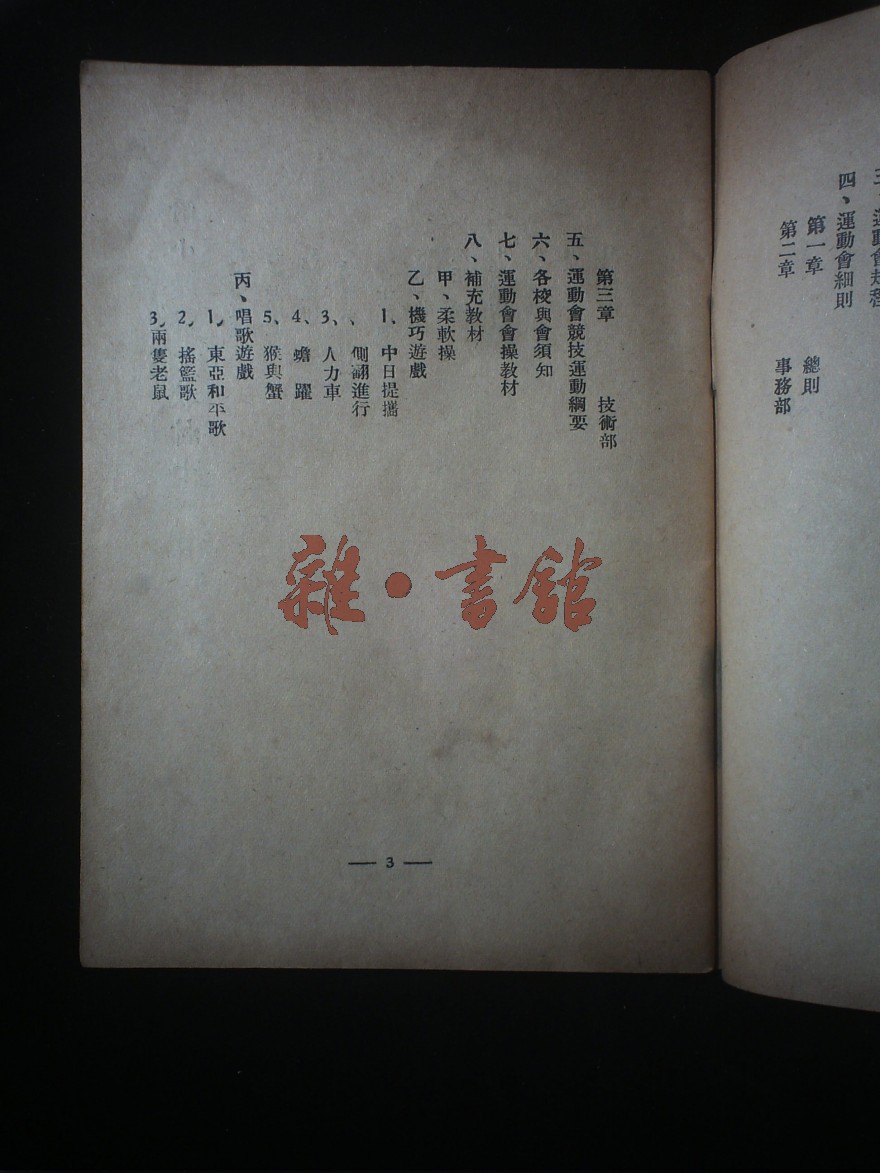 四、運動會細則
第一章 總則
第二章 事務部
第三章 技術部
五、運動會競技運動綱要
六、各校與會須知
七、運動會會操教材
八、補充教材
甲、柔軟操
乙、機巧遊戲
1、中日提攜
、側翩進行
3、人力車
4、蟾躍
5、猴與蟹
丙、唱歌遊戲
1、東亞和平歌
2、搖籃歌
3、兩隻老鼠
雜·書館
— 3 —